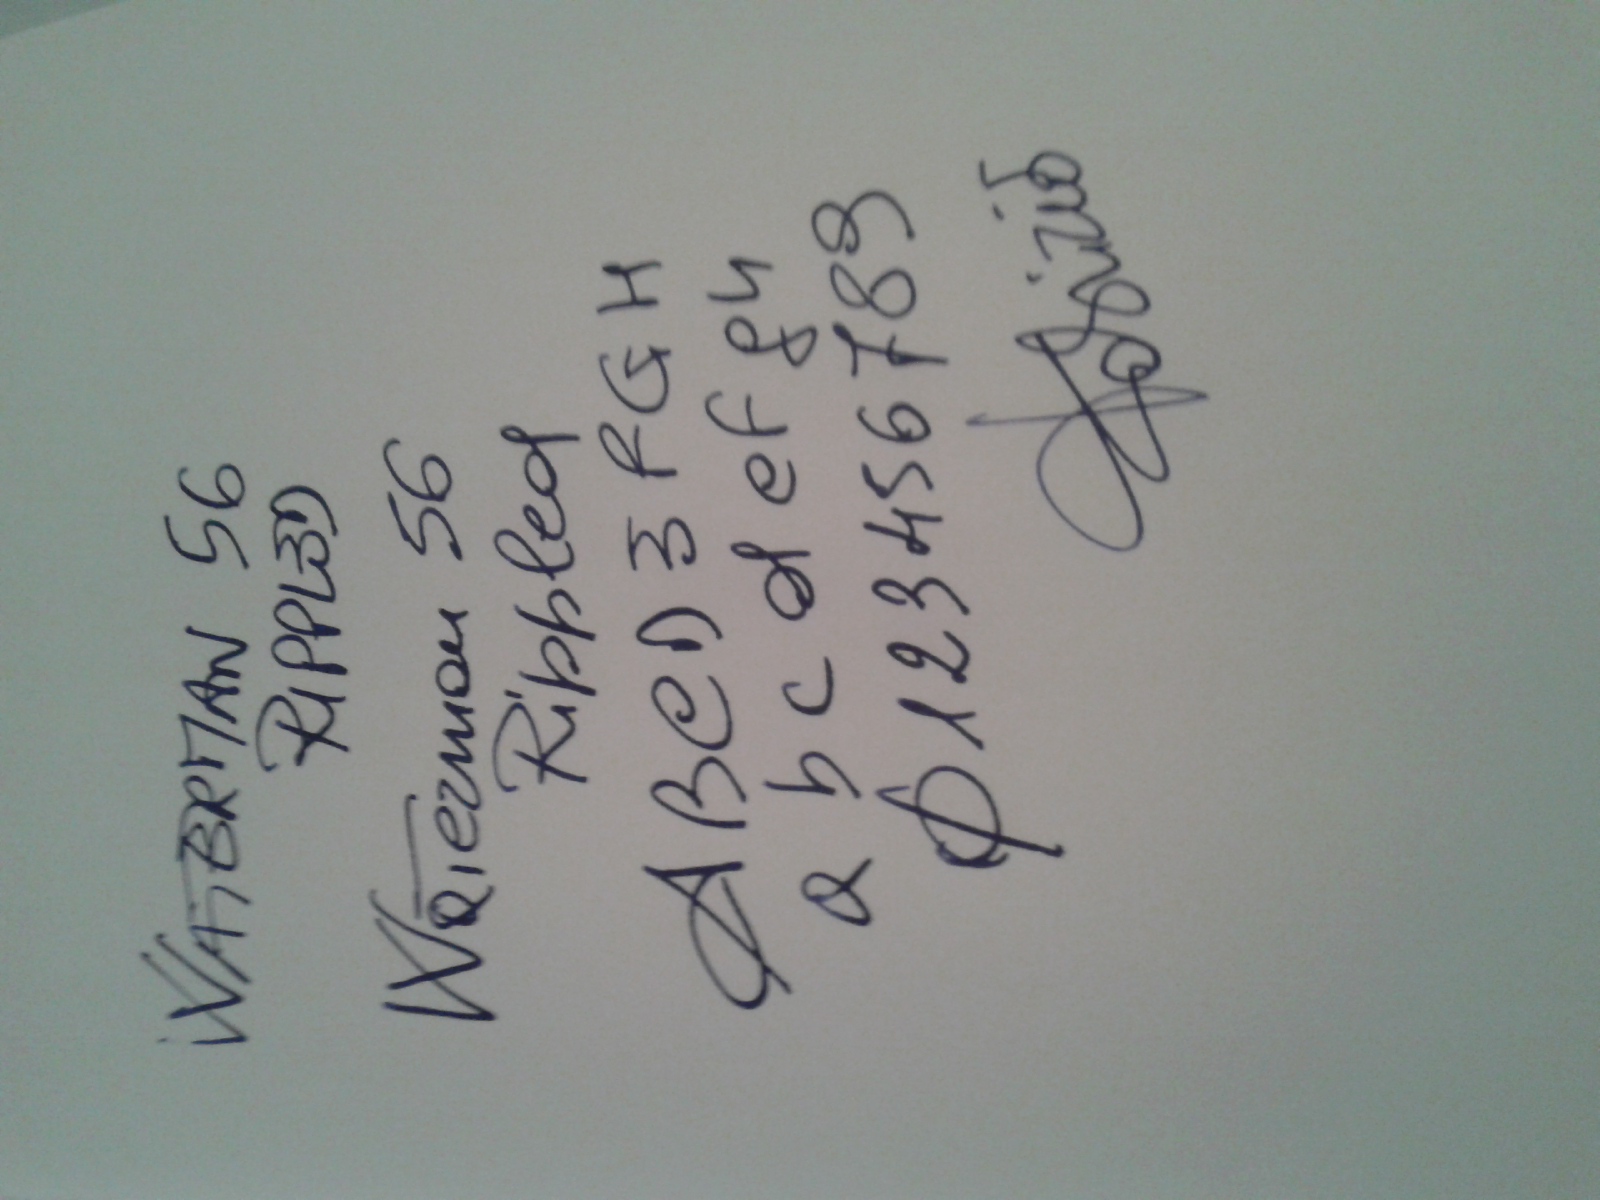 WATERMAN 56
RIPPLED
Waterman 56
Rippled
A B C D E F G H
a b c d e f g h
0 1 2 3 4 5 6 7 8 9